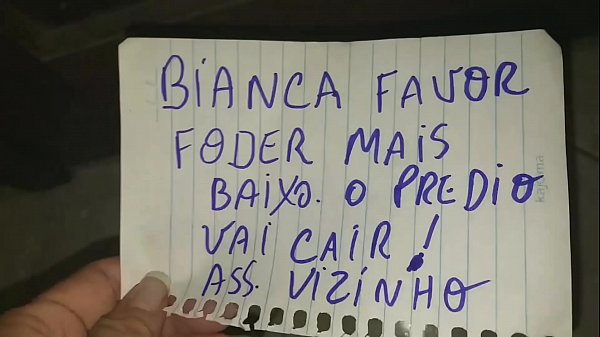 BIANCA FAVOR
FODER MAIS
BAIXO. O PREDIO
VAI CAIR!
ASS. VIZINHO
kajoma